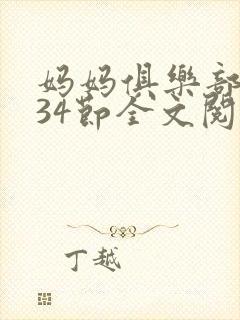 妈妈俱樂部
34節全文閱
丁越